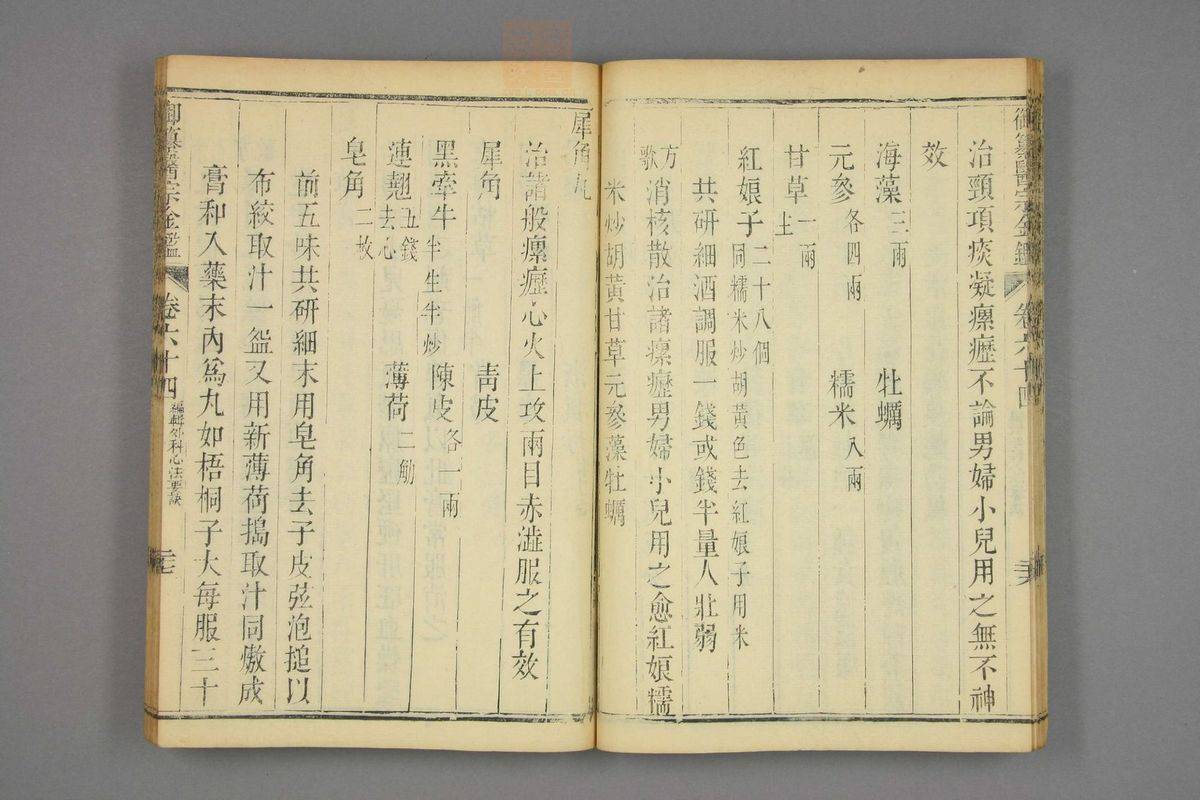 御纂醫宗金鑑 卷六十四
治頸項痰凝瘰癧不論男婦小兒用之無不神
效
海藻三兩 牡蠣
元參各四兩 糯米八兩
甘草一兩生
紅娘子二十八個同糯米炒胡黃色去紅娘子用米
共研細酒調服一錢或錢半量人壯弱
方歌 消核散治諸瘰癧男婦小兒用之愈紅娘糯
米炒胡黃甘草元參藻牡蠣
犀角丸
治諸般瘰癧心火上攻兩目赤澁服之有效
犀角 青皮
黑牽牛半生半炒 陳皮各一兩
連翹五錢去心 薄荷二觔
皂角二枚
前五味共研細末用皂角去子皮弦泡搥以
布絞取汁一盌又用新薄荷搗取汁同熬成
膏和入藥末內爲丸如梧桐子大每服三十
御纂醫宗金鑑 卷六十四 編輯外科心法要訣